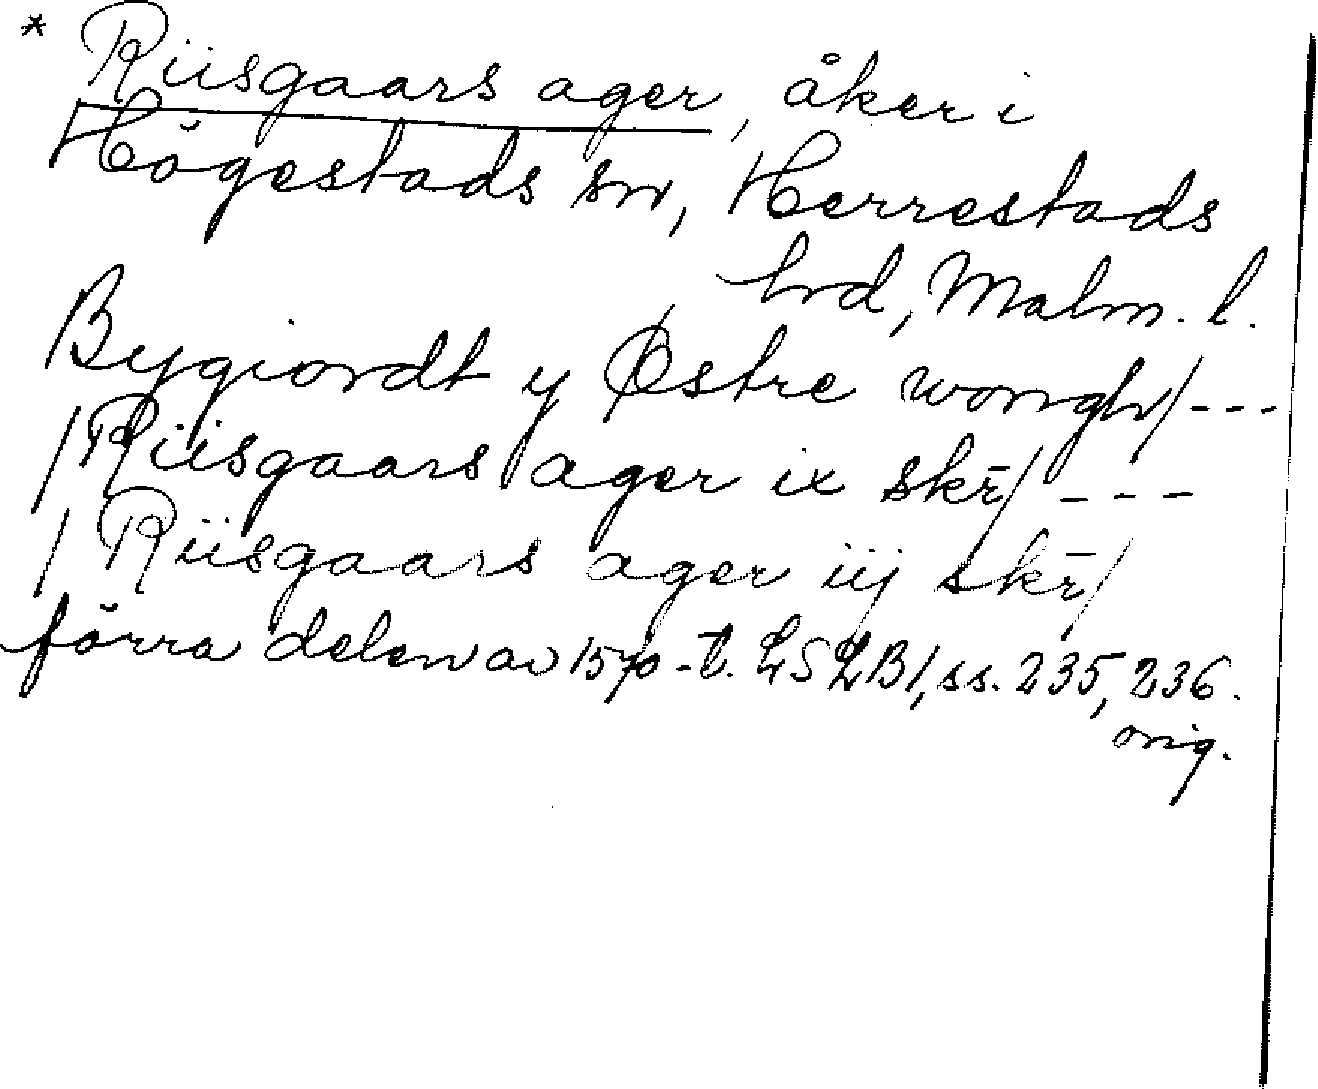 * Riisgaars ager, åker i
Högestads sn, Herrestads
hrd, Malm. l.
Bygiordt y Østre wongh/ ---
/Riisgaars ager ix skr̄/ ---
/Riisgaars ager iij skr̄/
förra delen av 1570-t. LSLB1, ss. 235, 236.
orig.